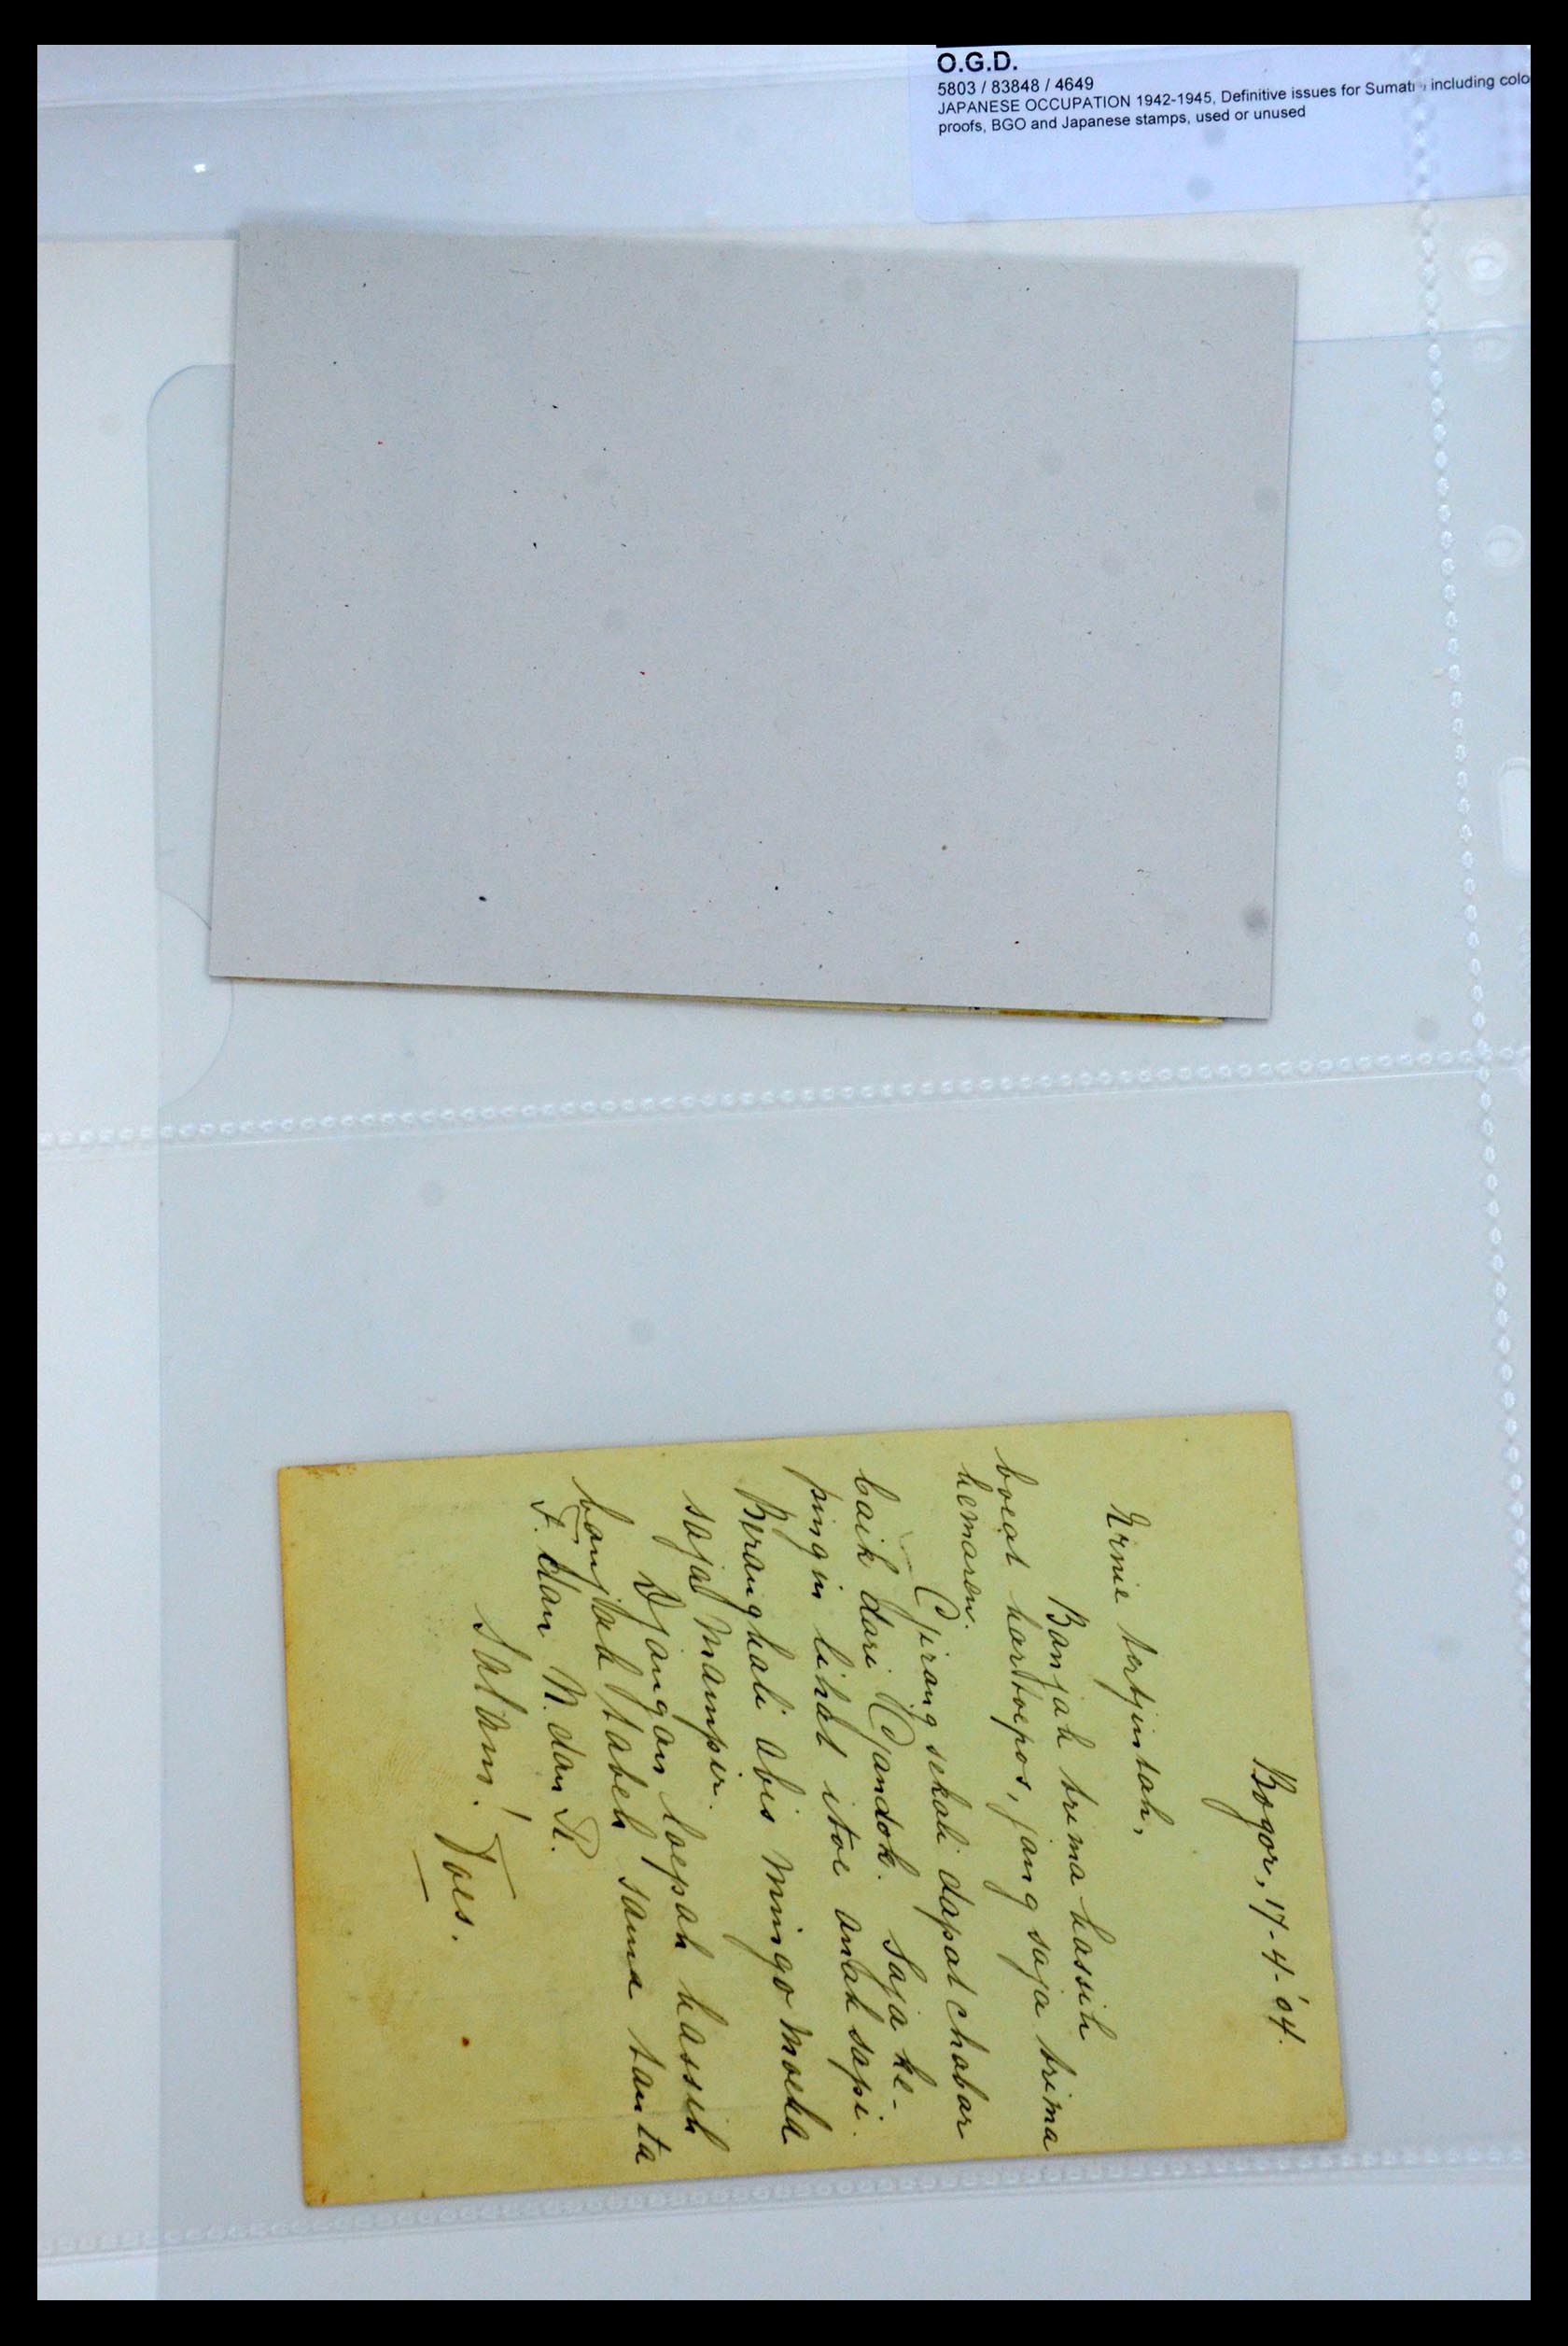 O.G.D.
5803 / 83848 / 4649
JAPANESE OCCUPATION 1942-1945, Definitive issues for Sumatr including colo
proofs, BGO and Japanese stamps, used or unused
Bogor, 17-4-'04.
Ernie tertjintah,
Banjak trima kassih
boeat kartoepos, jang saja trima
kemaren.
Girang sekali dapat chabar
baik dari Gandok. Saja ke-
pingin lihat itoe anak sapi.
Barangkali abis mingo moeka
saja mampir.
Djangan loepah kassih
banjak tabeh sama tanta
F. Han N. dan R.
Salam!
Toes.